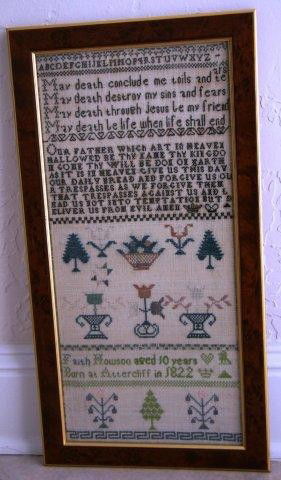 ABCDEFGHIJKLMNOPQRSTUVWXYZ
ars
May death conclude me toils and te
May death destroy my sins and fears
May death through Jesus be my friend
May death be life when life shall end
OUR FATHER WHICH ART IN HEAVEN
HALLOWED BE THY NAME THY KINGDO
M COME THY WILL BE DOE ON EARTH
AS IT IS IN HEAVEN GIVE US THIS DAY
OUR DAILY BREAD AND FORGIVE US OU
R TRESPASSES AS WE FORGIVE THEM
THAT TRESPASSES AGAINST US AND L
EAD US NOT INTO TEMPTATION BUT D
ELIVER US FROM EVIL AMEN
Faith Howson aged 10 years
Born at Attercliff in 1822